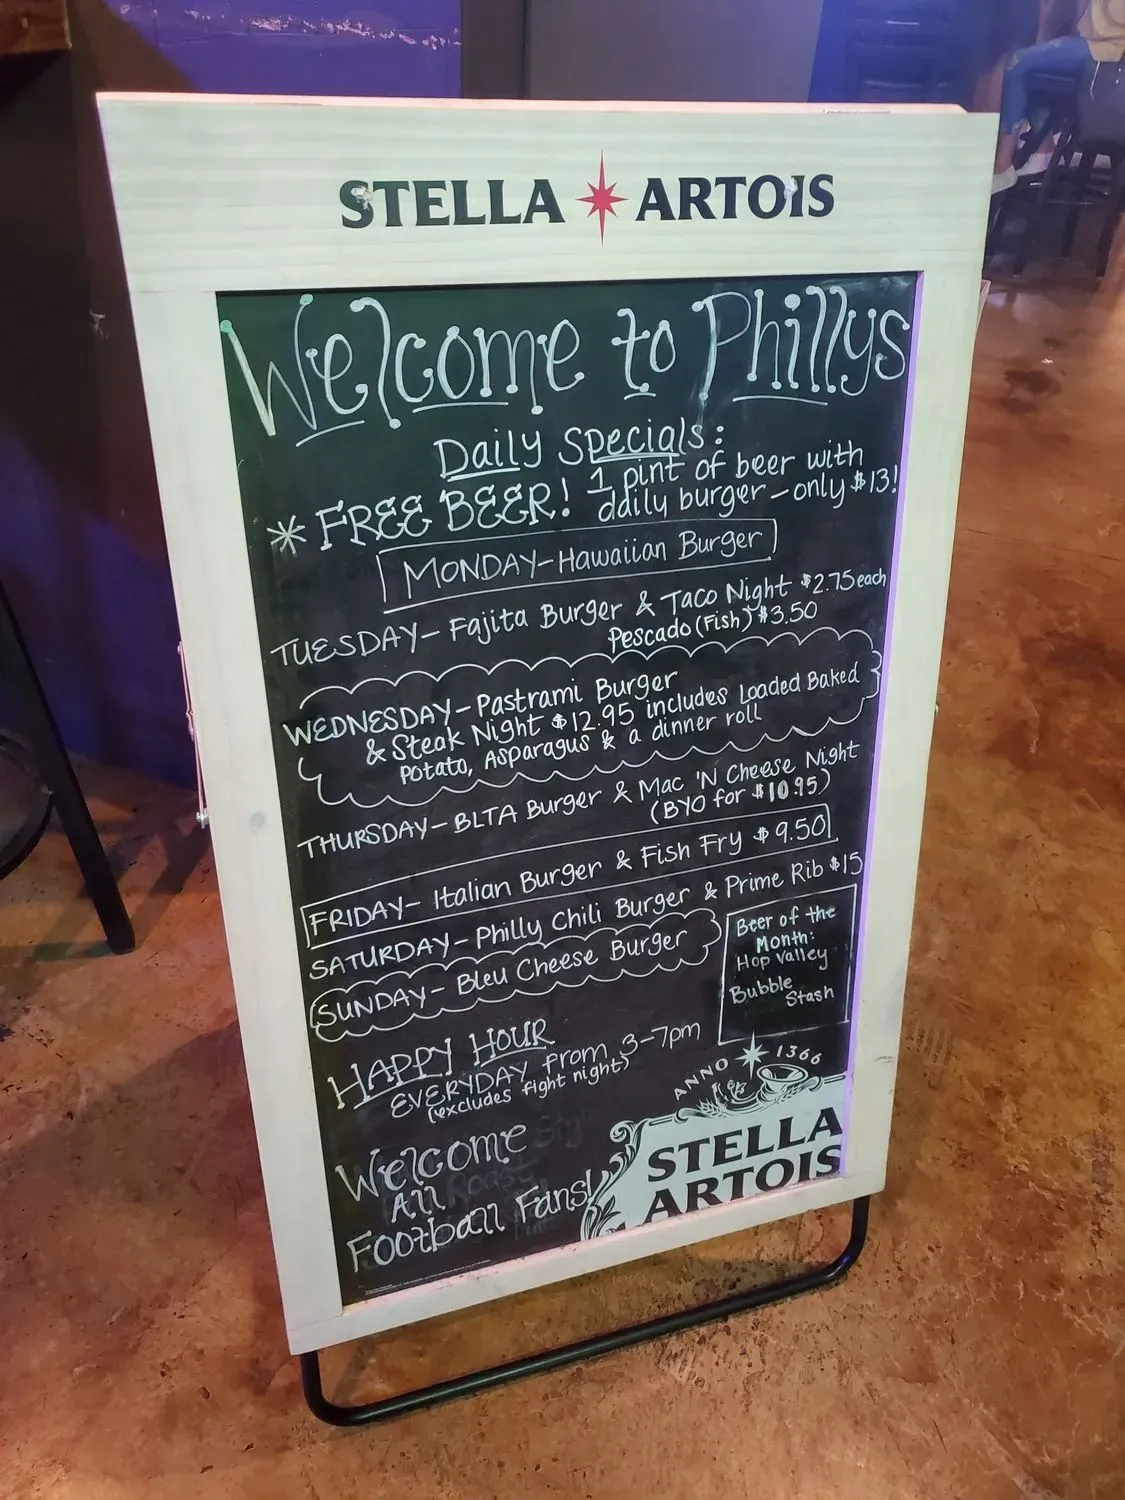 STELLA ARTOIS
Welcome to Phillys
Daily Specials:
* FREE BEER! 1 pint of beer with
daily burger - only $13!
MONDAY - Hawaiian Burger
TUESDAY - Fajita Burger & Taco Night $2.75 each
Pescado (Fish) $3.50
WEDNESDAY - Pastrami Burger
& Steak Night $12.95 includes Loaded Baked
Potato, Asparagus & a dinner roll
THURSDAY - BLTA Burger & Mac 'N Cheese Night
(BYO for $10.95)
FRIDAY - Italian Burger & Fish Fry $9.50
SATURDAY - Philly Chili Burger & Prime Rib $15
SUNDAY - Bleu Cheese Burger
Beer of the
Month:
Hop Valley
Bubble
Stash
HAPPY HOUR
EVERYDAY from 3-7pm
(excludes fight night)
Welcome
All
Football Fans!
ANNO 1366
STELLA
ARTOIS